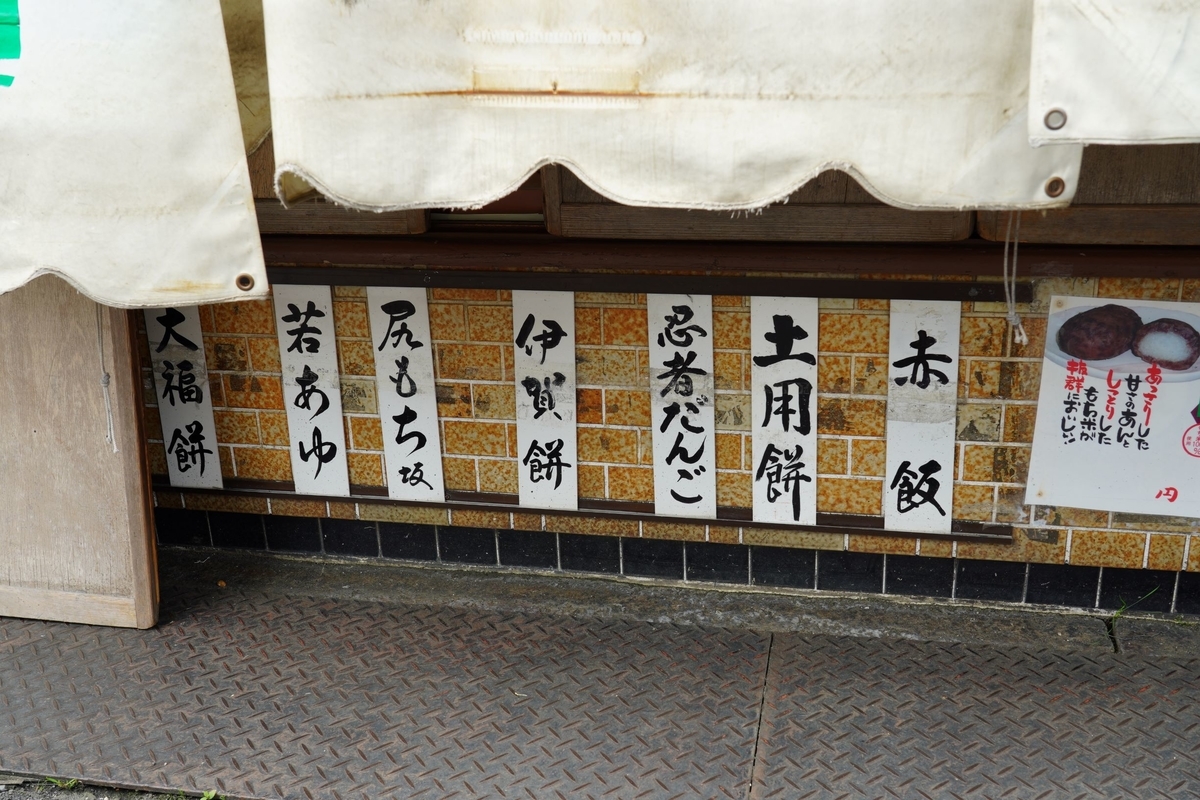 赤飯
土用餅
忍者だんご
伊賀餅
尻もち坂
若あゆ
大福餅
あっさりした
甘さのあんと
しっとりした
もち米が
抜群においしい
円